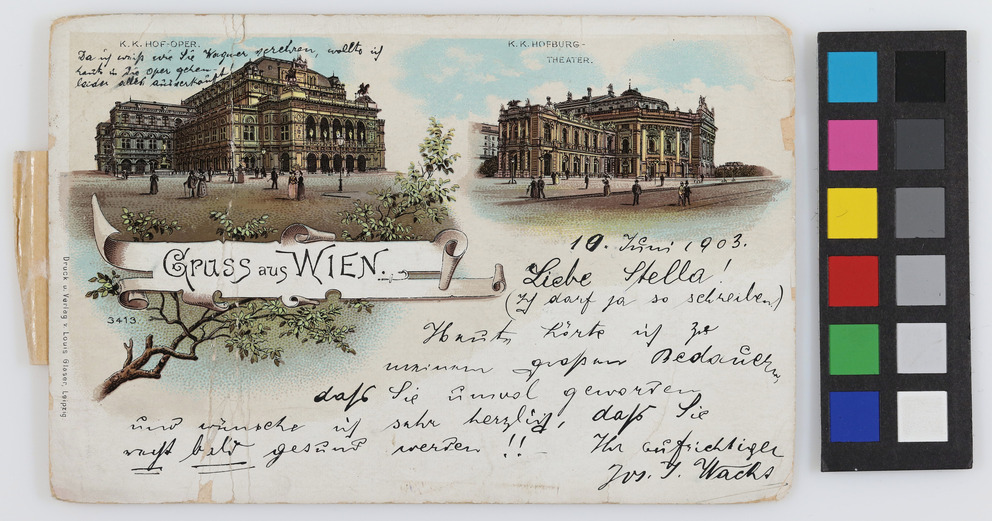 K. K. HOF-OPER.
Da ich weiß wie Sie Wagner verehren, wollte ich
heute in die Oper gehen,
leider alles ausverkauft!
K. K. HOFBURG-
THEATER.
GRUSS aus WIEN.
3413.
Druck u. Verlag v. Louis Glaser, Leipzig
19. Juni 1903.
Liebe Stella!
(Ich darf ja so schreiben)
Heute hörte ich zu
meinem großen Bedauern,
daß Sie unwol geworden
und wünsche ich sehr herzlich, daß Sie
recht bald gesund werden!! Ihr aufrichtiger
Jos. J. Wachs